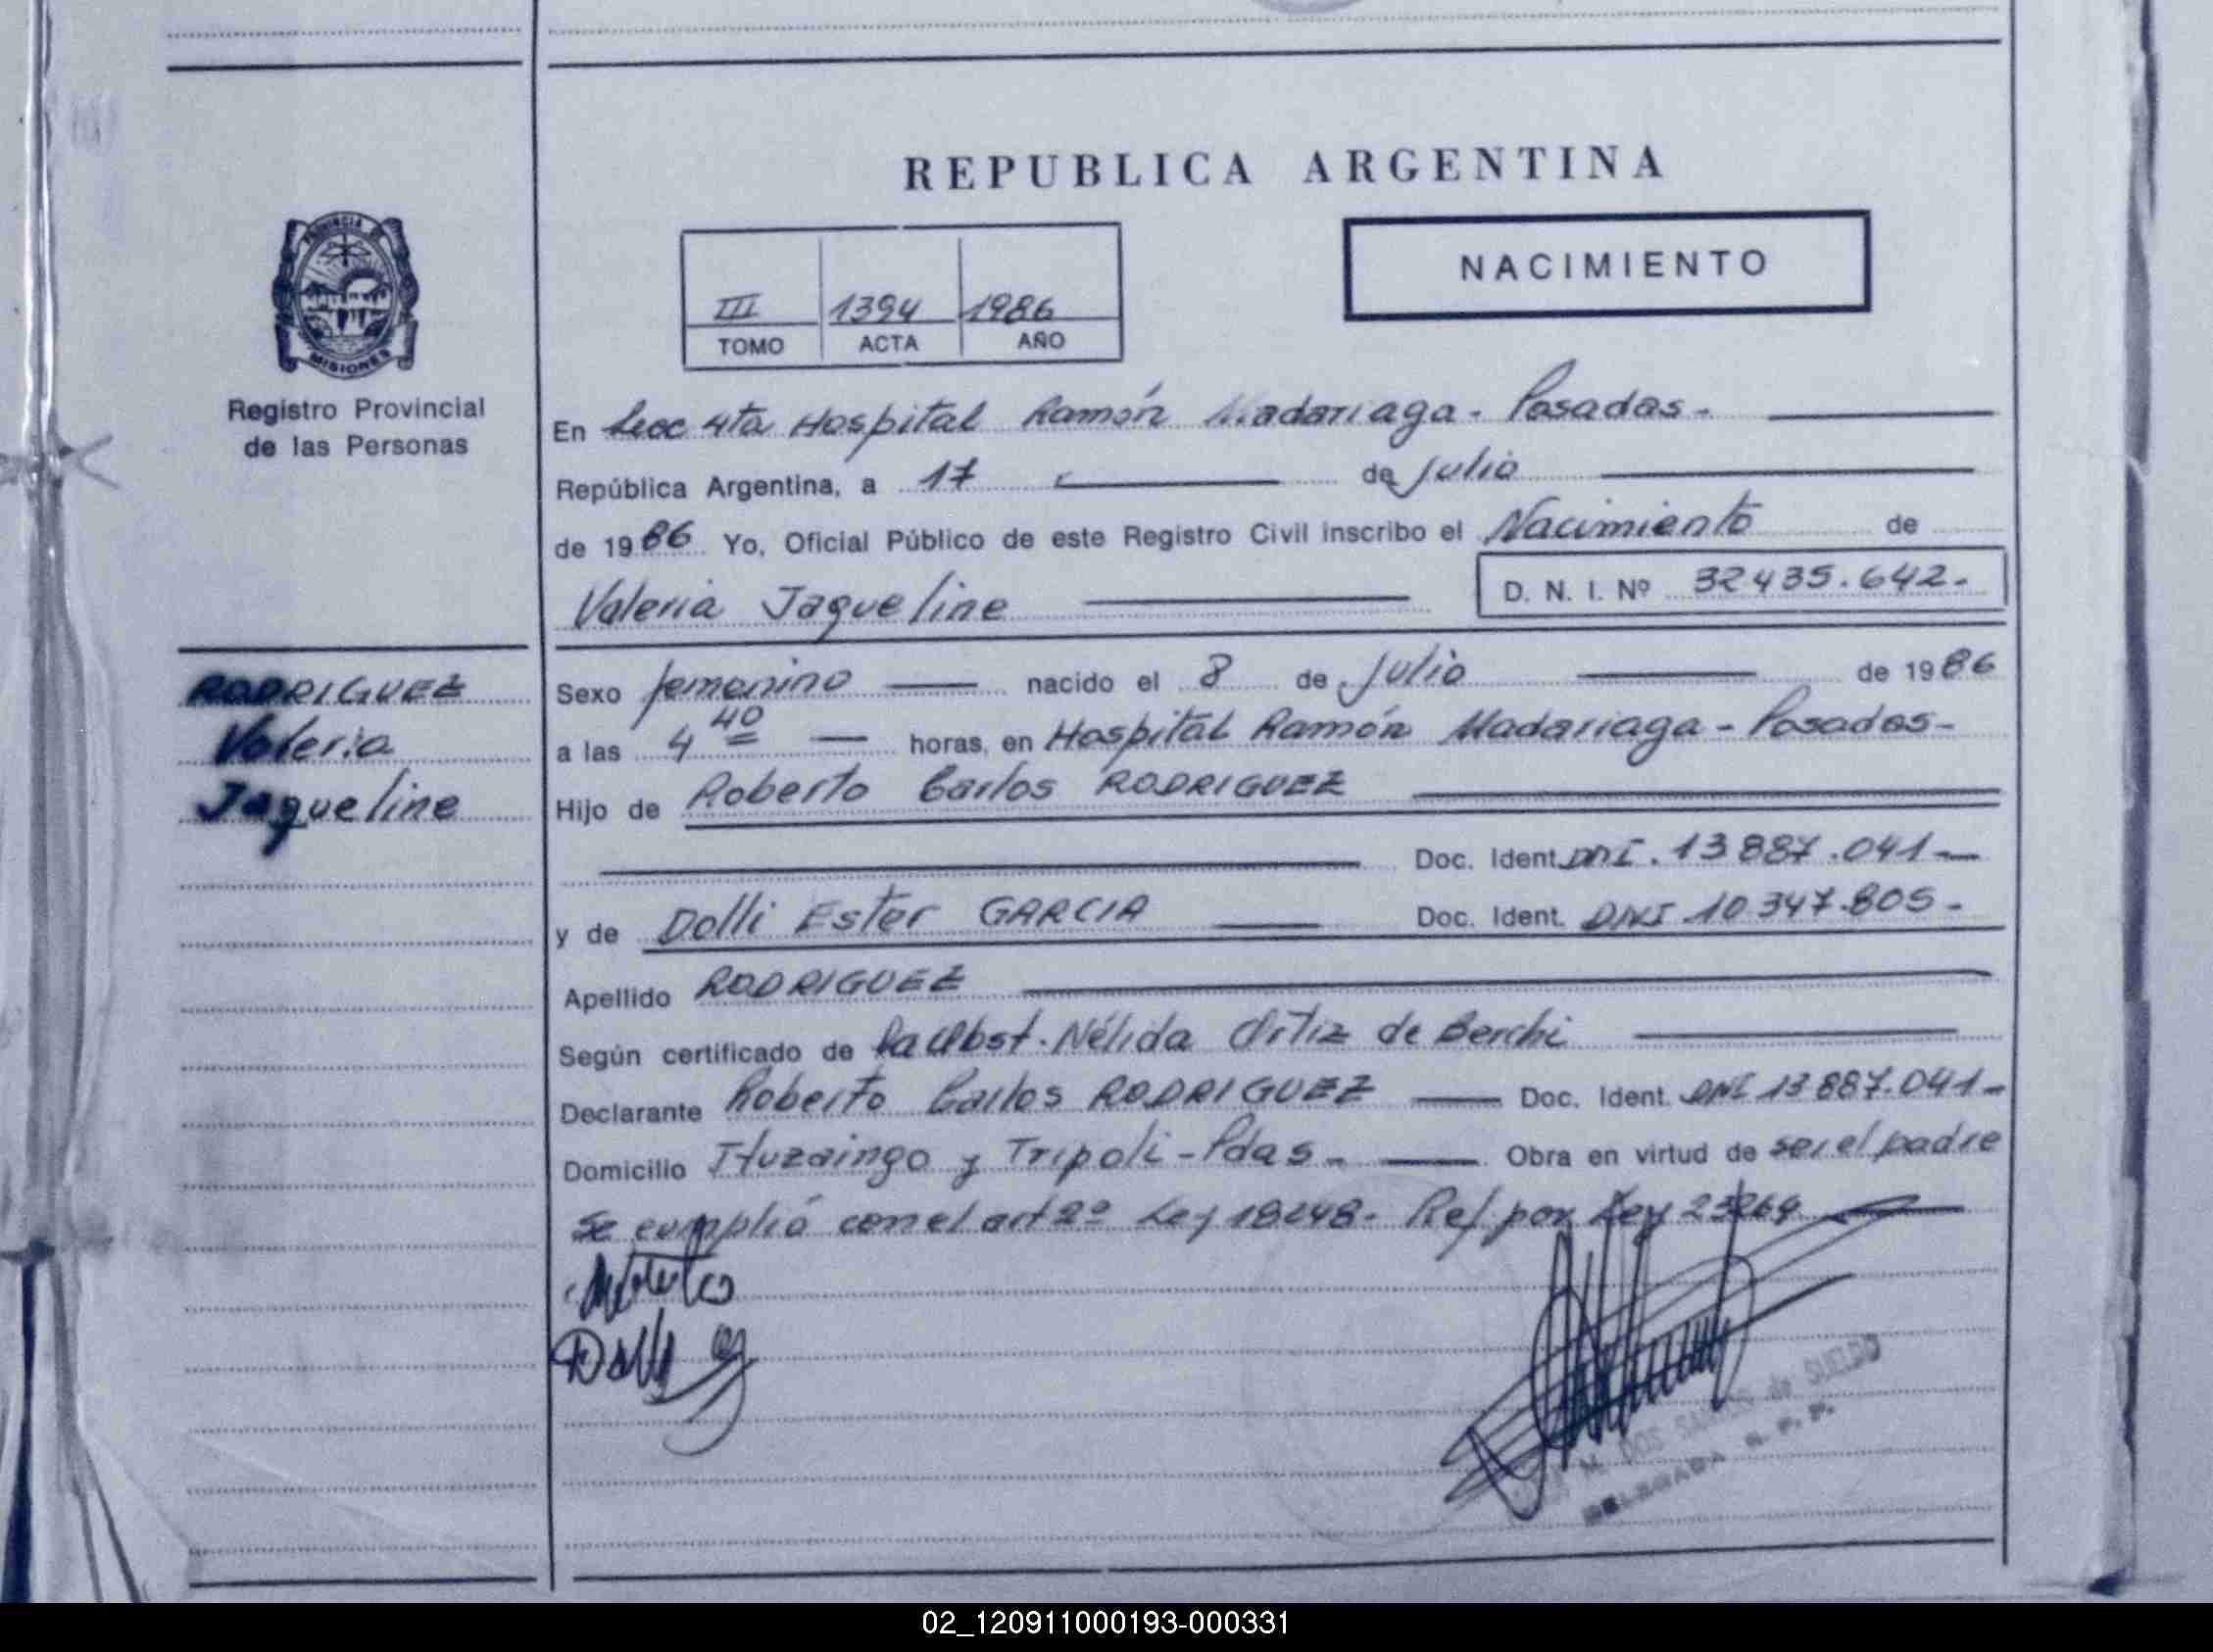 REPUBLICA ARGENTINA
NACIMIENTO
III 1394 1986
TOMO ACTA AÑO
PROVINCIA DE
MISIONES
Registro Provincial
de las Personas
En Secc 4ta Hospital Ramón Madariaga - Posadas -
República Argentina, a 17 de Julio
de 1986 Yo, Oficial Público de este Registro Civil inscribo el Nacimiento de
Valeria Jaqueline D. N. I. Nº 32435.642.-
RODRIGUEZ
Valeria
Jaqueline
Sexo femenino nacido el 8 de Julio de 1986
a las 4 40 horas, en Hospital Ramón Madariaga - Posadas -
Hijo de Roberto Carlos RODRIGUEZ
Doc. Ident. DNI. 13887.041 -
y de Dolli Ester GARCIA Doc. Ident. DNI 10347.805 -
Apellido RODRIGUEZ
Según certificado de Obst. Nélida Ortiz de Berchi
Declarante Roberto Carlos RODRIGUEZ Doc. Ident. DNI 13887.041 -
Domicilio Ituzaingo y Tripoli - Pdas - Obra en virtud de ser el padre
Se cumplió con el art 2º Ley 18248 - Ref por Ley 23264
Dolli
M. DOS SANTOS de SUELDO
DELEGADA R. P. P.
02_120911000193-000331